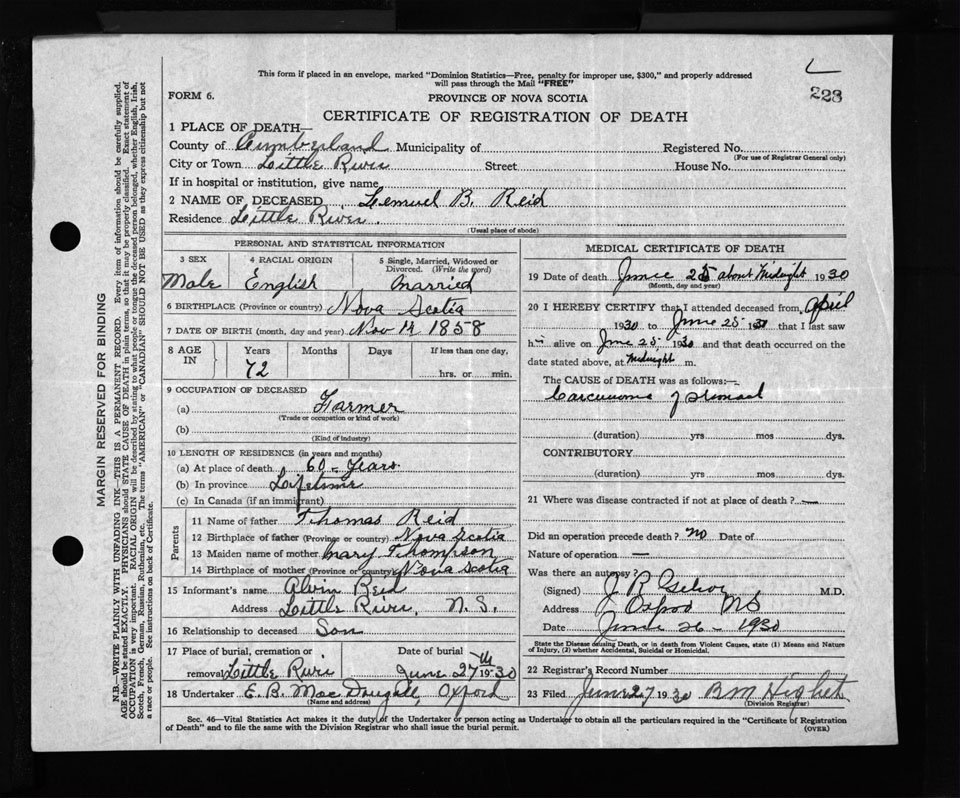 This form if placed in an envelope, marked "Dominion Statistics—Free, penalty for improper use, $300," and properly addressed
will pass through the Mail "FREE"
228
FORM 6.
PROVINCE OF NOVA SCOTIA
CERTIFICATE OF REGISTRATION OF DEATH
1 PLACE OF DEATH—
County of Cumberland Municipality of Registered No.
(For use of Registrar General only)
City or Town Little River Street House No.
If in hospital or institution, give name
2 NAME OF DECEASED Lemuel B. Reid
Residence Little River.
(Usual place of abode)
PERSONAL AND STATISTICAL INFORMATION
3 SEX
Male
4 RACIAL ORIGIN
English
5 Single, Married, Widowed or
Divorced. (Write the word)
Married
6 BIRTHPLACE (Province or country) Nova Scotia
7 DATE OF BIRTH (month, day and year) Nov 14 1858
8 AGE IN
Years Months Days If less than one day,
72 hrs. or min.
9 OCCUPATION OF DECEASED
(a) Farmer
(Trade or occupation or kind of work)
(b)
(Kind of industry)
10 LENGTH OF RESIDENCE (in years and months)
(a) At place of death 60 - Years.
(b) In province Lifetime
(c) In Canada (if an immigrant)
Parents
11 Name of father Thomas Reid
12 Birthplace of father (Province or country) Nova Scotia
13 Maiden name of mother Mary Thompson
14 Birthplace of mother (Province or country) Nova Scotia
15 Informant's name Alvin Reid
Address Little River, N.S.
16 Relationship to deceased Son
17 Place of burial, cremation or Date of burial
removal Little River June 27th 1930
18 Undertaker E. B. MacDougall, Oxford
(Name and address)
MEDICAL CERTIFICATE OF DEATH
19 Date of death June 25 about Midnight 1930
(Month, day and year)
20 I HEREBY CERTIFY that I attended deceased from April
1930 to June 25 1930 that I last saw
h alive on June 25 1930 and that death occurred on the
date stated above, at Midnight m.
The CAUSE of DEATH was as follows:—
Carcinoma of stomach
(duration) yrs mos dys.
CONTRIBUTORY
(duration) yrs mos dys.
21 Where was disease contracted if not at place of death? —
Did an operation precede death? No Date of
Nature of operation —
Was there an autopsy?
(Signed) J. R. M.D.
Address Oxford NS
Date June 26 - 1930
State the Disease causing Death, or in death from Violent Causes, state (1) Means and Nature
of Injury, (2) whether Accidental, Suicidal or Homicidal.
22 Registrar's Record Number
23 Filed June 27 1930 B M Hight
(Division Registrar)
Sec. 46—Vital Statistics Act makes it the duty of the Undertaker or person acting as Undertaker to obtain all the particulars required in the "Certificate of Registration
of Death" and to file the same with the Division Registrar who shall issue the burial permit.
(OVER)
MARGIN RESERVED FOR BINDING
N.B.—WRITE PLAINLY WITH UNFADING INK—THIS IS A PERMANENT RECORD. Every item of information should be carefully supplied.
AGE should be stated EXACTLY. PHYSICIANS should STATE CAUSE OF DEATH in plain terms, so that it may be properly classified. Exact statement of
OCCUPATION is very important. RACIAL ORIGIN will be described by stating to what people or tongue the deceased person belonged, whether English, Irish,
Scotch, French, German, Russian, Ruthenian, etc. The terms "AMERICAN" or "CANADIAN" SHOULD NOT BE USED as they express citizenship but not
a race or people. See instructions on back of Certificate.